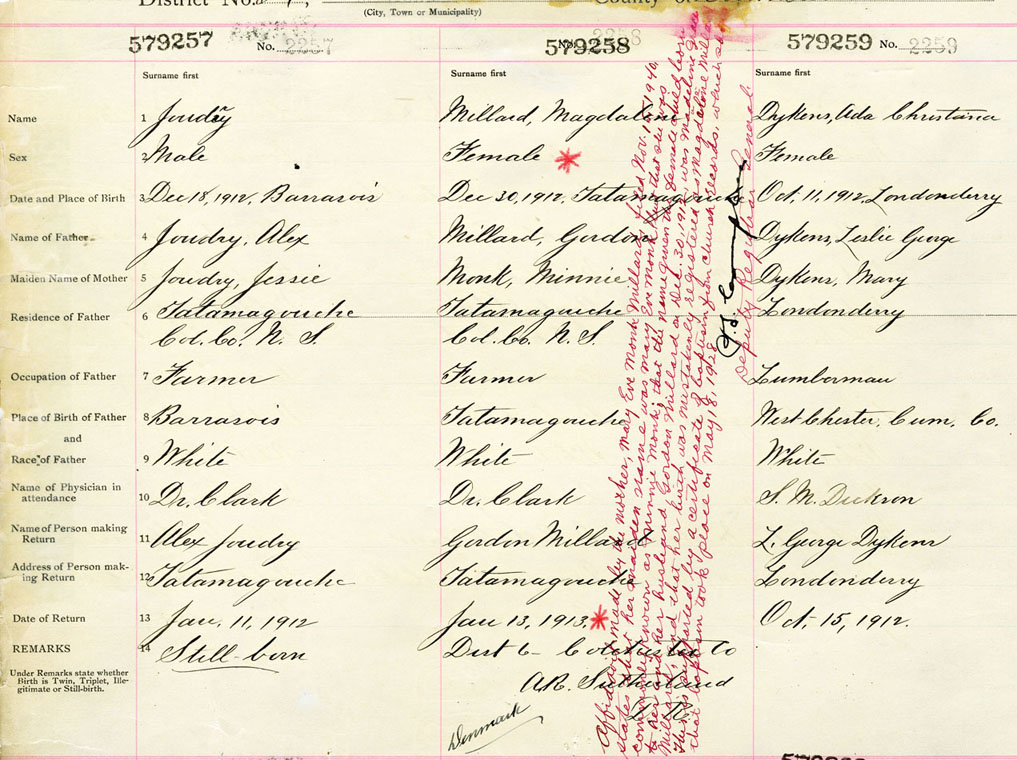 District No.
(City, Town or Municipality)
County of
579257 No. 2257
579258 No. 2258
579259 No. 2259
Surname first
Surname first
Surname first
Name 1 Joudry
Millard, Magdalene
Dykens, Ada Christana
Sex 2 Male
Female *
Female
Date and Place of Birth 3 Dec 18, 1912, Barrasois
Dec 30, 1912, Tatamagouche
Oct, 11, 1912, Londonderry
Name of Father 4 Joudry, Alex
Millard, Gordon
Dykens, Leslie George
Maiden Name of Mother 5 Joudry, Jessie
Monk, Minnie
Dykens, Mary
Residence of Father 6 Tatamagouche
Col. Co. N. S.
Tatamagouche
Col. Co. N. S.
Londonderry
Occupation of Father 7 Farmer
Farmer
Lumberman
Place of Birth of Father 8 Barrasois
Tatamagouche
West Chester, Cum, Co.
and
Race of Father 9 White
White
White
Name of Physician in
attendance 10 Dr. Clark
Dr. Clark
S. M. Dickson
Name of Person making
Return 11 Alex Joudry
Gordon Millard
L. George Dykens
Address of Person mak-
ing Return 12 Tatamagouche
Tatamagouche
Londonderry
Date of Return 13 Jan. 11, 1912
Jan 13, 1913. *
Oct. 15, 1912.
REMARKS 14 Still-born
Dist 6 - Colchester Co
A.R. Sutherland
D. R.
Under Remarks state whether
Birth is Twin, Triplet, Ille-
gitimate or Still-birth.
Denmark
Affidavit made by the mother, Mary Eve Monk Millard, filed Nov. 15, 1940,
states that her maiden name was Mary Eve Monk but that she was
commonly known as Minnie Monk; that the name given the female child born
to her and her husband Gordon Millard on Dec. 30, 1912 was Madeline
Millard, and that her birth was mistakenly registered as Magdalene Millard
This is supported by a certificate of baptism from church records, which
that baptism took place on May 18, 1928.
Deputy Registrar General.